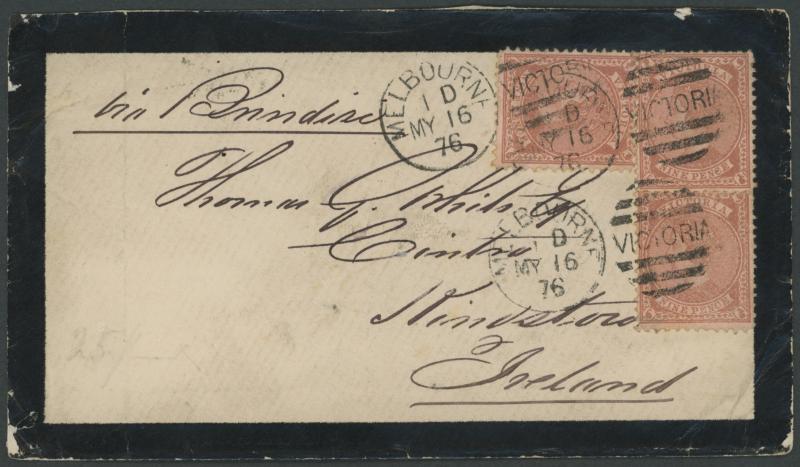 via Brindisi
MELBOURNE
1 D
MY 16
76
VICTORIA
VICTORIA
NINE PENCE
Thomas G.
MELBOURNE
1 D
MY 16
76
VICTORIA
NINE PENCE
Cintra
Kingstown
Ireland
25/-